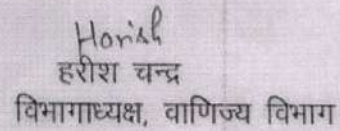 Harish
हरीश चन्द्र
विभागाध्यक्ष, वाणिज्य विभाग